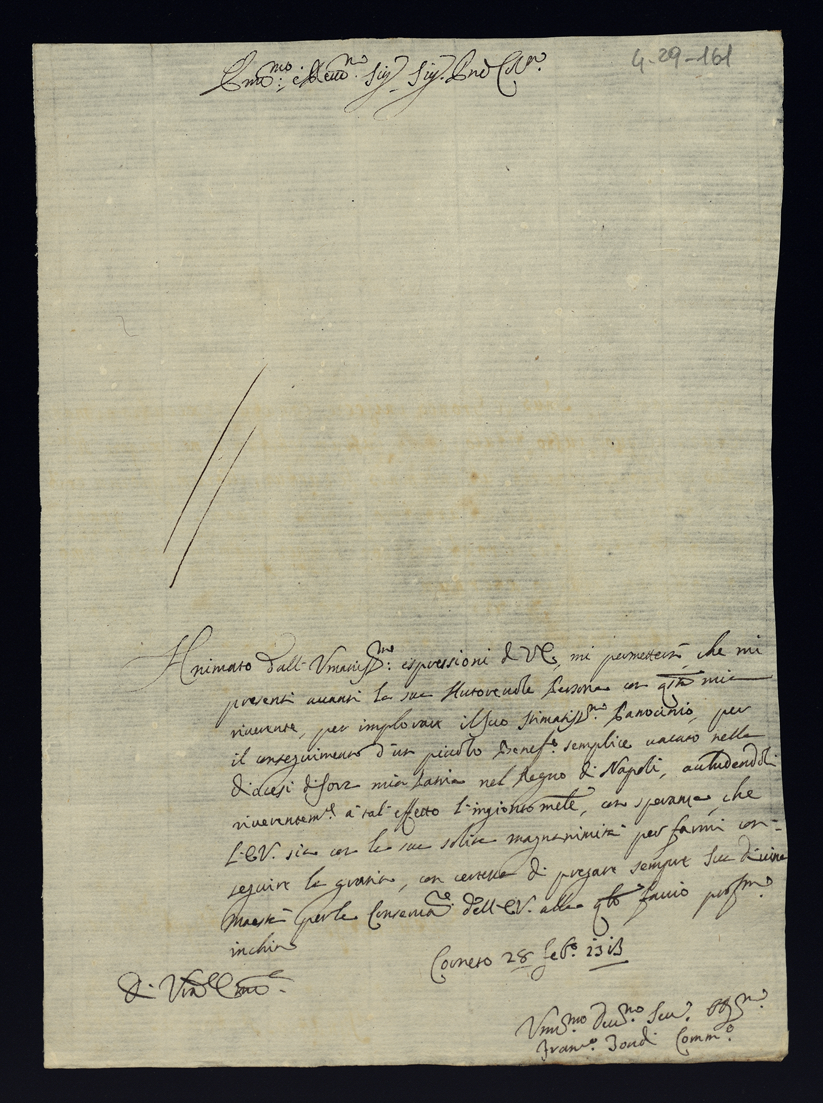 4-29-161
Em.mo e Rev.mo Sig.r Sig.r
Animato dall'Umaniss.me espressioni di VE, mi permetterà, che mi
presenti avanti la sua Autorevole Persona con q.sta mia
riverente, per implorare il suo stimatiss.mo Patrocinio, per
il conseguimento d'un piccolo Benef.o semplice vacato nella
Diocesi di Sora mia Patria nel Regno di Napoli,
riverentem.e a tal'effetto l'ingionto, con speranza, che
l'E.V. sia con la sua solita magnanimità per farmi con-
seguire la grazia, con certezza di pregare sempre Sua Divina
Maestà per la Conserva.ne dell'E.V. alla q.le faccio prof.mo
inchino
Corneto 28 Feb.o
Di V.ra Em.
Um.mo Dev.mo Ser.
Fran.co